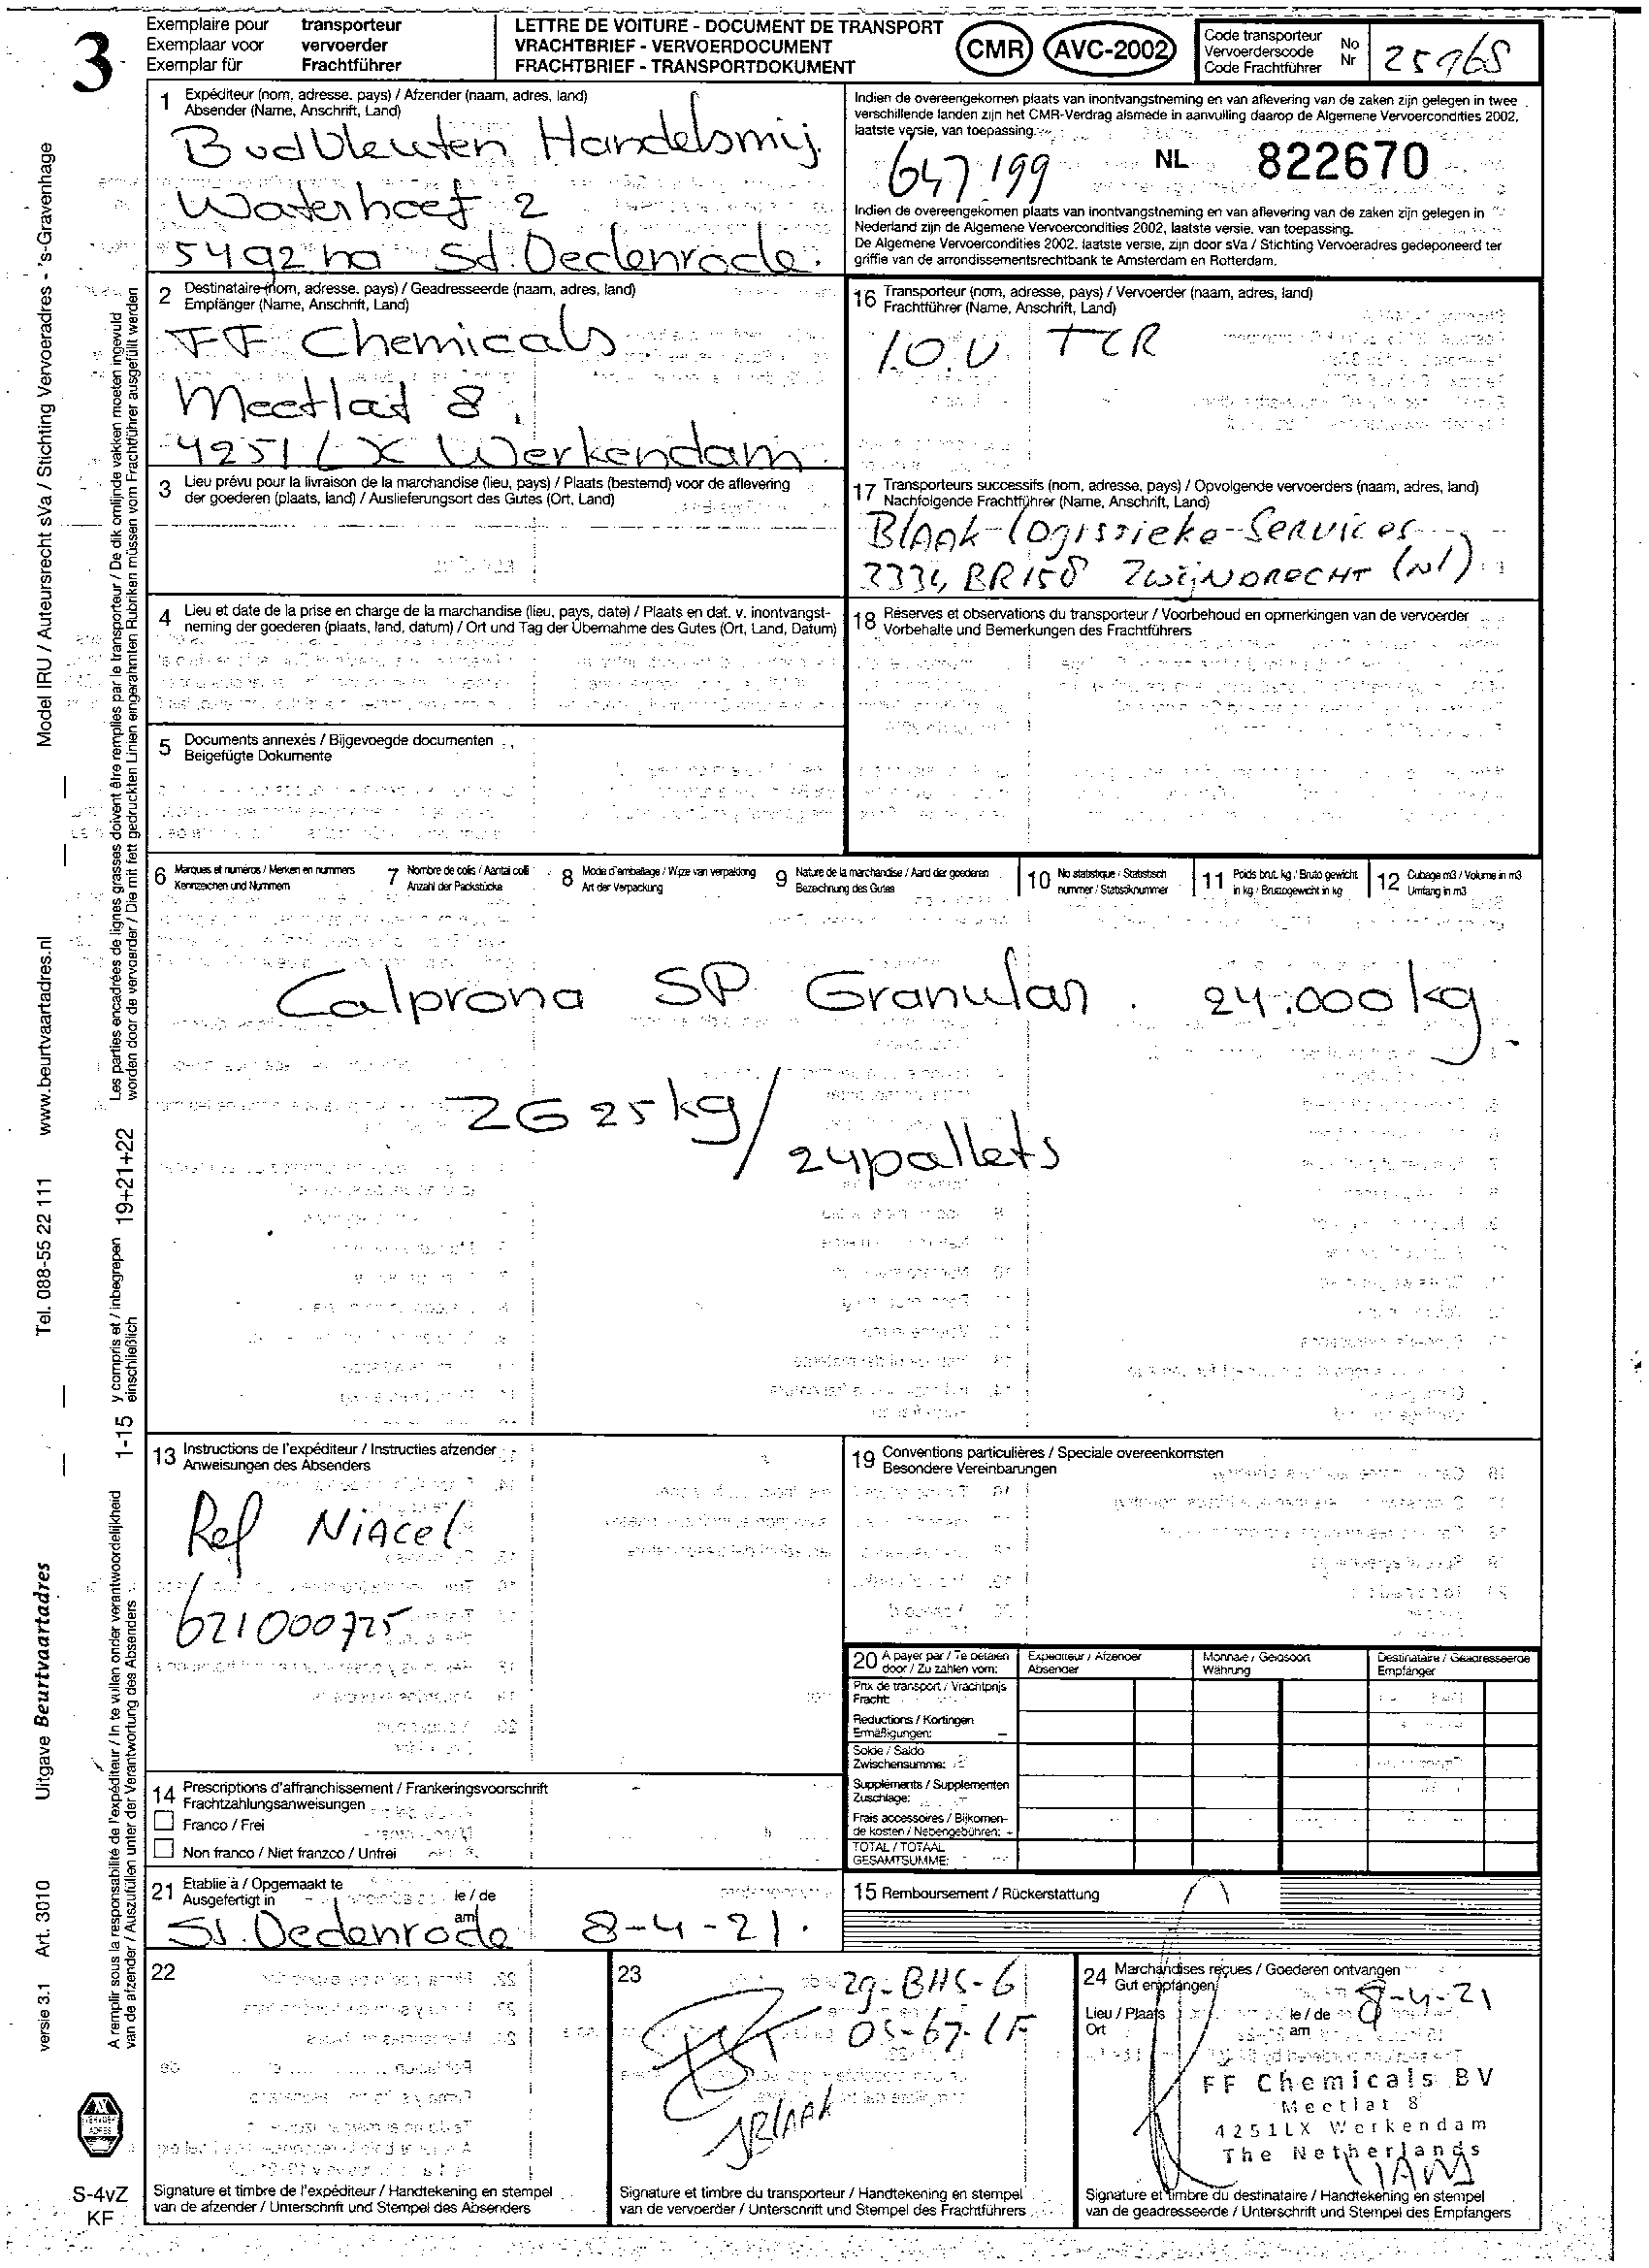 3
Exemplaire pour transporteur
Exemplaar voor vervoerder
Exemplar für Frachtführer
LETTRE DE VOITURE - DOCUMENT DE TRANSPORT
VRACHTBRIEF - VERVOERDOCUMENT
FRACHTBRIEF - TRANSPORTDOKUMENT
CMR
AVC-2002
Code transporteur
Vervoerderscode
Code Frachtführer
No
Nr
25168
1 Expéditeur (nom, adresse, pays) / Afzender (naam, adres, land)
Absender (Name, Anschrift, Land)
Bud Vleuten Handelsmij.
Waterhoef 2
5492 na Sd. Oedenrode.
Indien de overeengekomen plaats van inontvangstneming en van aflevering van de zaken zijn gelegen in twee
verschillende landen zijn het CMR-Verdrag alsmede in aanvulling daarop de Algemene Vervoercondities 2002,
laatste versie, van toepassing.
647199
NL 822670
Indien de overeengekomen plaats van inontvangstneming en van aflevering van de zaken zijn gelegen in
Nederland zijn de Algemene Vervoercondities 2002, laatste versie, van toepassing.
De Algemene Vervoercondities 2002, laatste versie, zijn door sVa / Stichting Vervoeradres gedeponeerd ter
griffie van de arrondissementsrechtbank te Amsterdam en Rotterdam.
2 Destinataire (nom, adresse, pays) / Geadresseerde (naam, adres, land)
Empfänger (Name, Anschrift, Land)
FF Chemicals
Meetlat 8.
4251 LX Werkendam.
16 Transporteur (nom, adresse, pays) / Vervoerder (naam, adres, land)
Frachtführer (Name, Anschrift, Land)
I.O.V TCR
3 Lieu prévu pour la livraison de la marchandise (lieu, pays) / Plaats (bestemd) voor de aflevering
der goederen (plaats, land) / Auslieferungsort des Gutes (Ort, Land)
17 Transporteurs successifs (nom, adresse, pays) / Opvolgende vervoerders (naam, adres, land)
Nachfolgende Frachtführer (Name, Anschrift, Land)
Blaak-Logistieke-Services
3334 BR158 ZWIJNDRECHT (Nl)
4 Lieu et date de la prise en charge de la marchandise (lieu, pays, date) / Plaats en dat. v. inontvangst-
neming der goederen (plaats, land, datum) / Ort und Tag der Übernahme des Gutes (Ort, Land, Datum)
18 Réserves et observations du transporteur / Voorbehoud en opmerkingen van de vervoerder
Vorbehalte und Bemerkungen des Frachtführers
5 Documents annexés / Bijgevoegde documenten
Beigefügte Dokumente
6 Marques et numéros / Merken en nummers
Kennzeichen und Nummern
7 Nombre de colis / Aantal colli
Anzahl der Packstücke
8 Mode d'emballage / Wijze van verpakking
Art der Verpackung
9 Nature de la marchandise / Aard der goederen
Bezeichnung des Gutes
10 No statistique / Statistisch
nummer / Statistiknummer
11 Poids brut, kg / Bruto gewicht
in kg / Bruttogewicht in kg
12 Cubage m3 / Volume in m3
Umfang in m3
Calprona SP Granular. 24.000 kg
ZG 25 kg / 24 pallets
13 Instructions de l'expéditeur / Instructies afzender
Anweisungen des Absenders
Ref NIACEL
621000725
19 Conventions particulières / Speciale overeenkomsten
Besondere Vereinbarungen
20 A payer par / Te betalen
door / Zu zahlen vom:
Expéditeur / Afzender
Absender
Monnaie / Geldsoort
Währung
Destinataire / Geadresseerde
Empfänger
Prix de transport / Vrachtprijs
Fracht:
Reductions / Kortingen
Ermäßigungen:
Solde / Saldo
Zwischensumme:
Suppléments / Supplementen
Zuschläge:
Frais accessoires / Bijkomen-
de kosten / Nebengebühren:
TOTAL / TOTAAL
GESAMTSUMME:
14 Prescriptions d'affranchissement / Frankeringsvoorschrift
Frachtzahlungsanweisungen
Franco / Frei
Non franco / Niet franzco / Unfrei
21 Etablie à / Opgemaakt te
Ausgefertigt in
le / de
am
St. Oedenrode 8-4-21.
15 Remboursement / Rückerstattung
22
Signature et timbre de l'expéditeur / Handtekening en stempel
van de afzender / Unterschrift und Stempel des Absenders
23
29-BHS-6
OS-67-LF
JBlAAK
Signature et timbre du transporteur / Handtekening en stempel
van de vervoerder / Unterschrift und Stempel des Frachtführers
24 Marchandises reçues / Goederen ontvangen
Gut empfangen
Lieu / Plaats
Ort
le / de
am
8-4-21
FF Chemicals BV
Meetlat 8
4251LX Werkendam
The Netherlands
Signature et timbre du destinataire / Handtekening en stempel
van de geadresseerde / Unterschrift und Stempel des Empfangers
Model IRU / Auteursrecht sVa / Stichting Vervoeradres - 's-Gravenhage
www.beurtvaartadres.nl
Tel. 088-55 22 111
Uitgave Beurtvaartadres
Art. 3010
versie 3.1
Les parties encadrées de lignes grasses doivent être remplies par le transporteur / De dik omlijnde vakken moeten ingevuld
worden door de vervoerder / Die mit fett gedruckten Linien eingerahmten Rubriken müssen vom Frachtführer ausgefüllt werden
19+21+22
y compris et / inbegrepen
einschließlich
1-15
A remplir sous la responsabilité de l'expéditeur / In te vullen onder verantwoordelijkheid
van de afzender / Auszufüllen unter der Verantwortung des Absenders
S-4vZ
KF